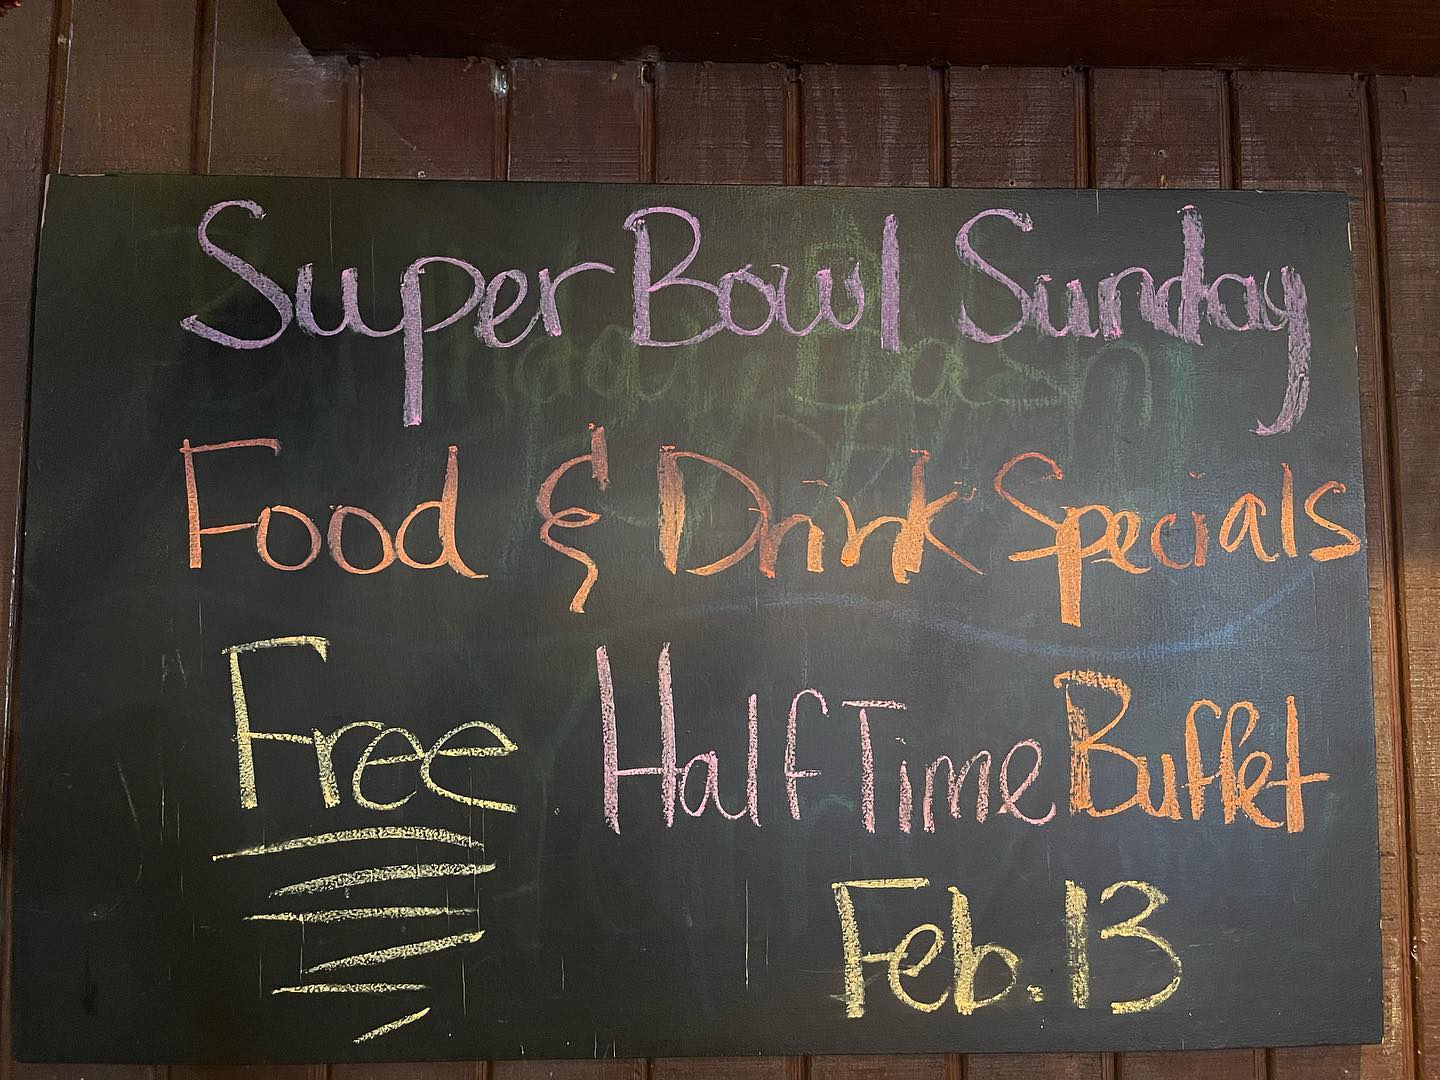 Super Bowl Sunday
Food & Drink Specials
Free Half Time Buffet
Feb. 13